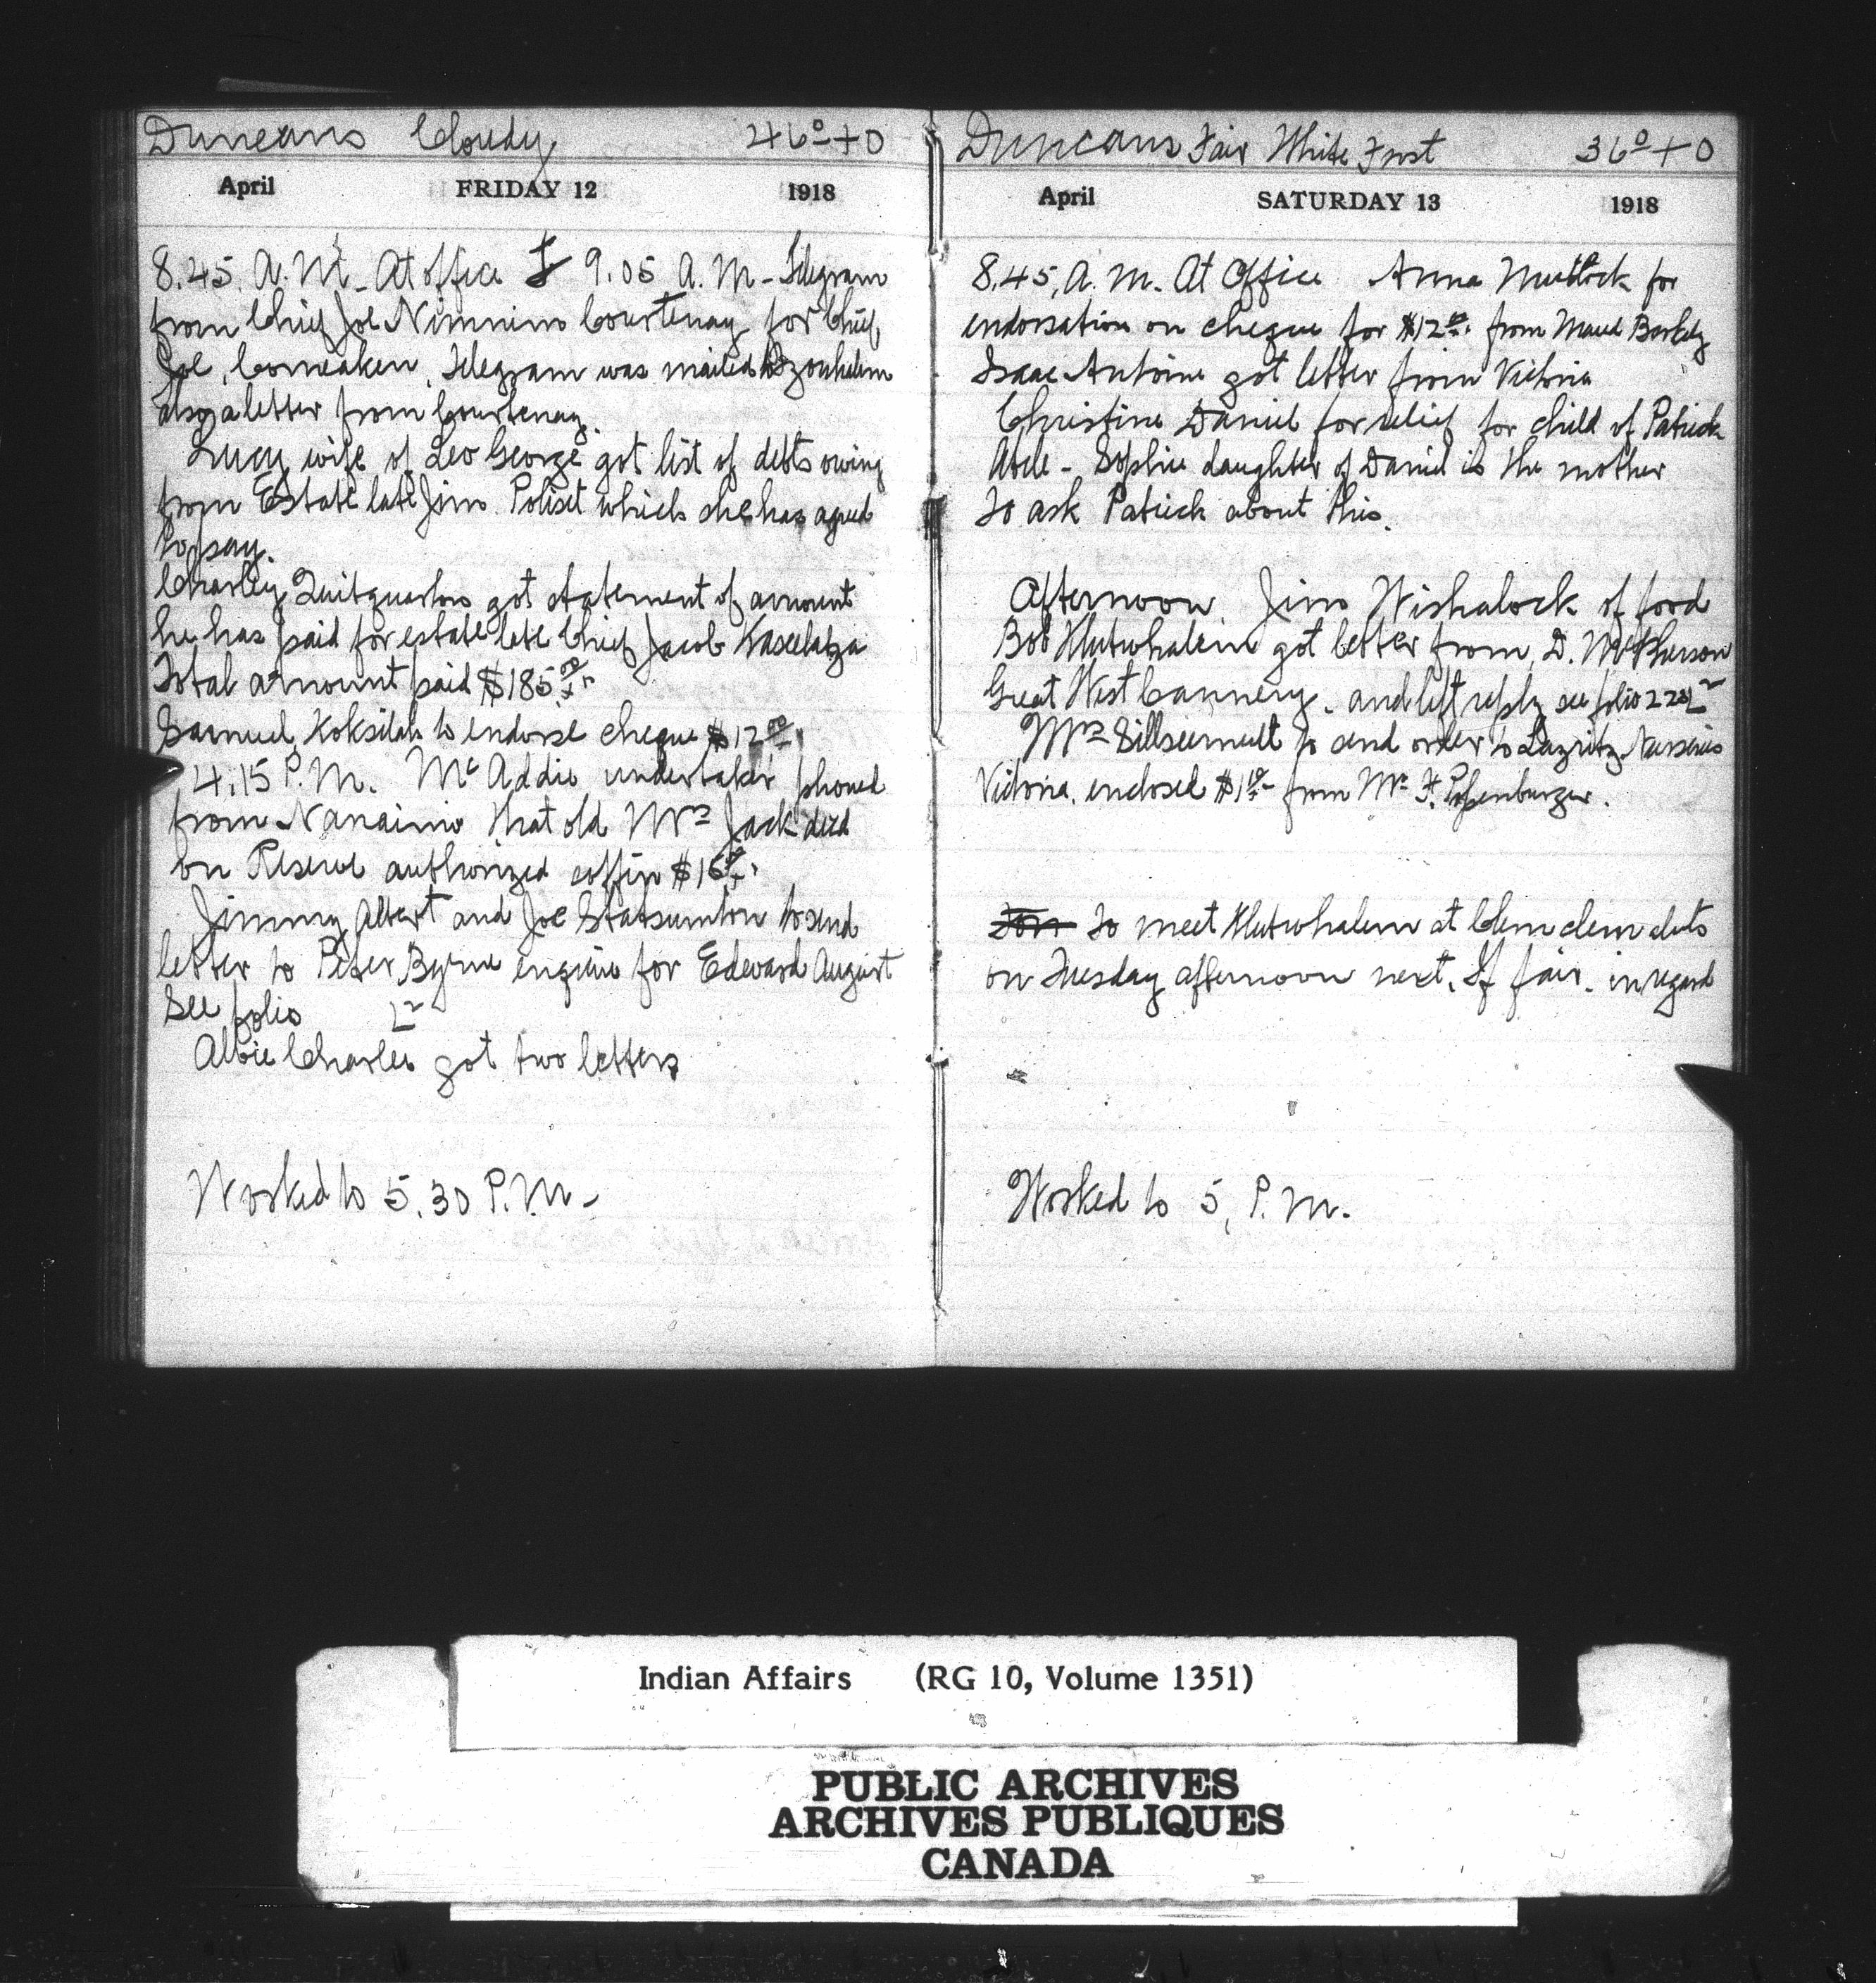 Duncans Cloudy 46°+0
April FRIDAY 12 1918
8.45. A.M. At office 9.05 A.M- Telegram
from Chief Joe Nimnim Courtenay for Chief
Joe, Comeaken, Telegram was mailed to
also a letter from Courtenay.
Lucy wife of Leo George got list of debts owing
from Estate late Jim Poliset which she has agreed
to pay.
Charley Quitquarton got statement of amount
he has paid for estate late Chief Jacob
Total amount paid $185.00
Samuel, Koksilah to endorse cheque $12.00
4.15 P.M. Mc Addie undertaker phoned
from Nanaimo that old Mrs Jack died
on Reserve authorized coffin $15.00
Jimmy Albert and Joe Statsumton to send
letter to Peter Byrne engine for Edward August
See folio Lr
Albie Charles got two letters
Worked to 5.30 P.M-
Duncans Fair White Frost 36°+0
April SATURDAY 13 1918
8.45, A.M. At Office Anna for
endorsation on cheque for $12.00 from Maud
Isaac Antoine got letter from Victoria
Christine Daniel for relief for child of Patrick
Abde - Sophie daughter of Daniel is the mother
to ask Patrick about this.
Afternoon Jim Wishalock of food
Bob Klutwhalem got letter from D. McPherson
Great West Cannery. and left reply see folio
Mrs to send order to Layritz Nurseries
Victoria. enclosed from Mr F.
to meet Klutwhalem at Clemclemaluts
on Tuesday afternoon next. If fair. in regard
Worked to 5, P.M.
Indian Affairs (RG 10, Volume 1351)
PUBLIC ARCHIVES
ARCHIVES PUBLIQUES
CANADA